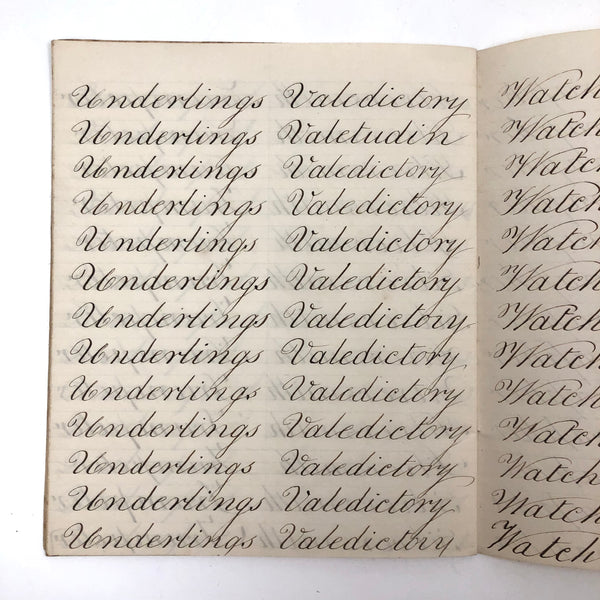 Underlings Valedictory Watch
Underlings Valetudin Watch
Underlings Valedictory Watch
Underlings Valedictory Watch
Underlings Valedictory Watch
Underlings Valedictory Watch
Underlings Valedictory Watch
Underlings Valedictory Watch
Underlings Valedictory Watch
Underlings Valedictory Watch
Underlings Valedictory Watch
Underlings Valedictory Watch
Underlings Valedictory Watch